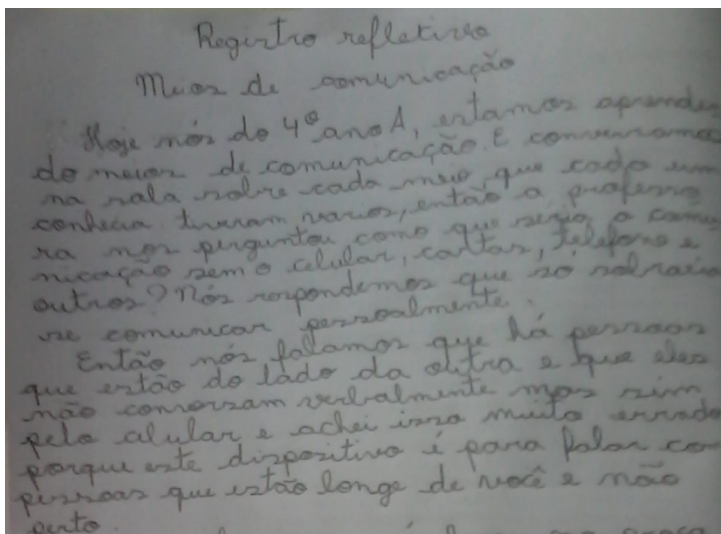 Registro refletivo
Meios de comunicação
Hoje nós do 4º ano A, estamos aprenden
do meios de comunicação. E conversamos
na sala sobre cada meio, que cada um
conhecia tiveram varios, então a professo
ra nos perguntou como que seria a comu
nicação sem o celular, cartas, telefone e
outros? Nós respondemos que só sobraria
se comunicar pessoalmente.
Então nós falamos que há pessoas
que estão do lado da outra e que eles
não conversam verbalmente mas sim
pelo celular e achei isso muito errado
porque este dispositivo é para falar com
pessoas que estão longe de você e não
perto.